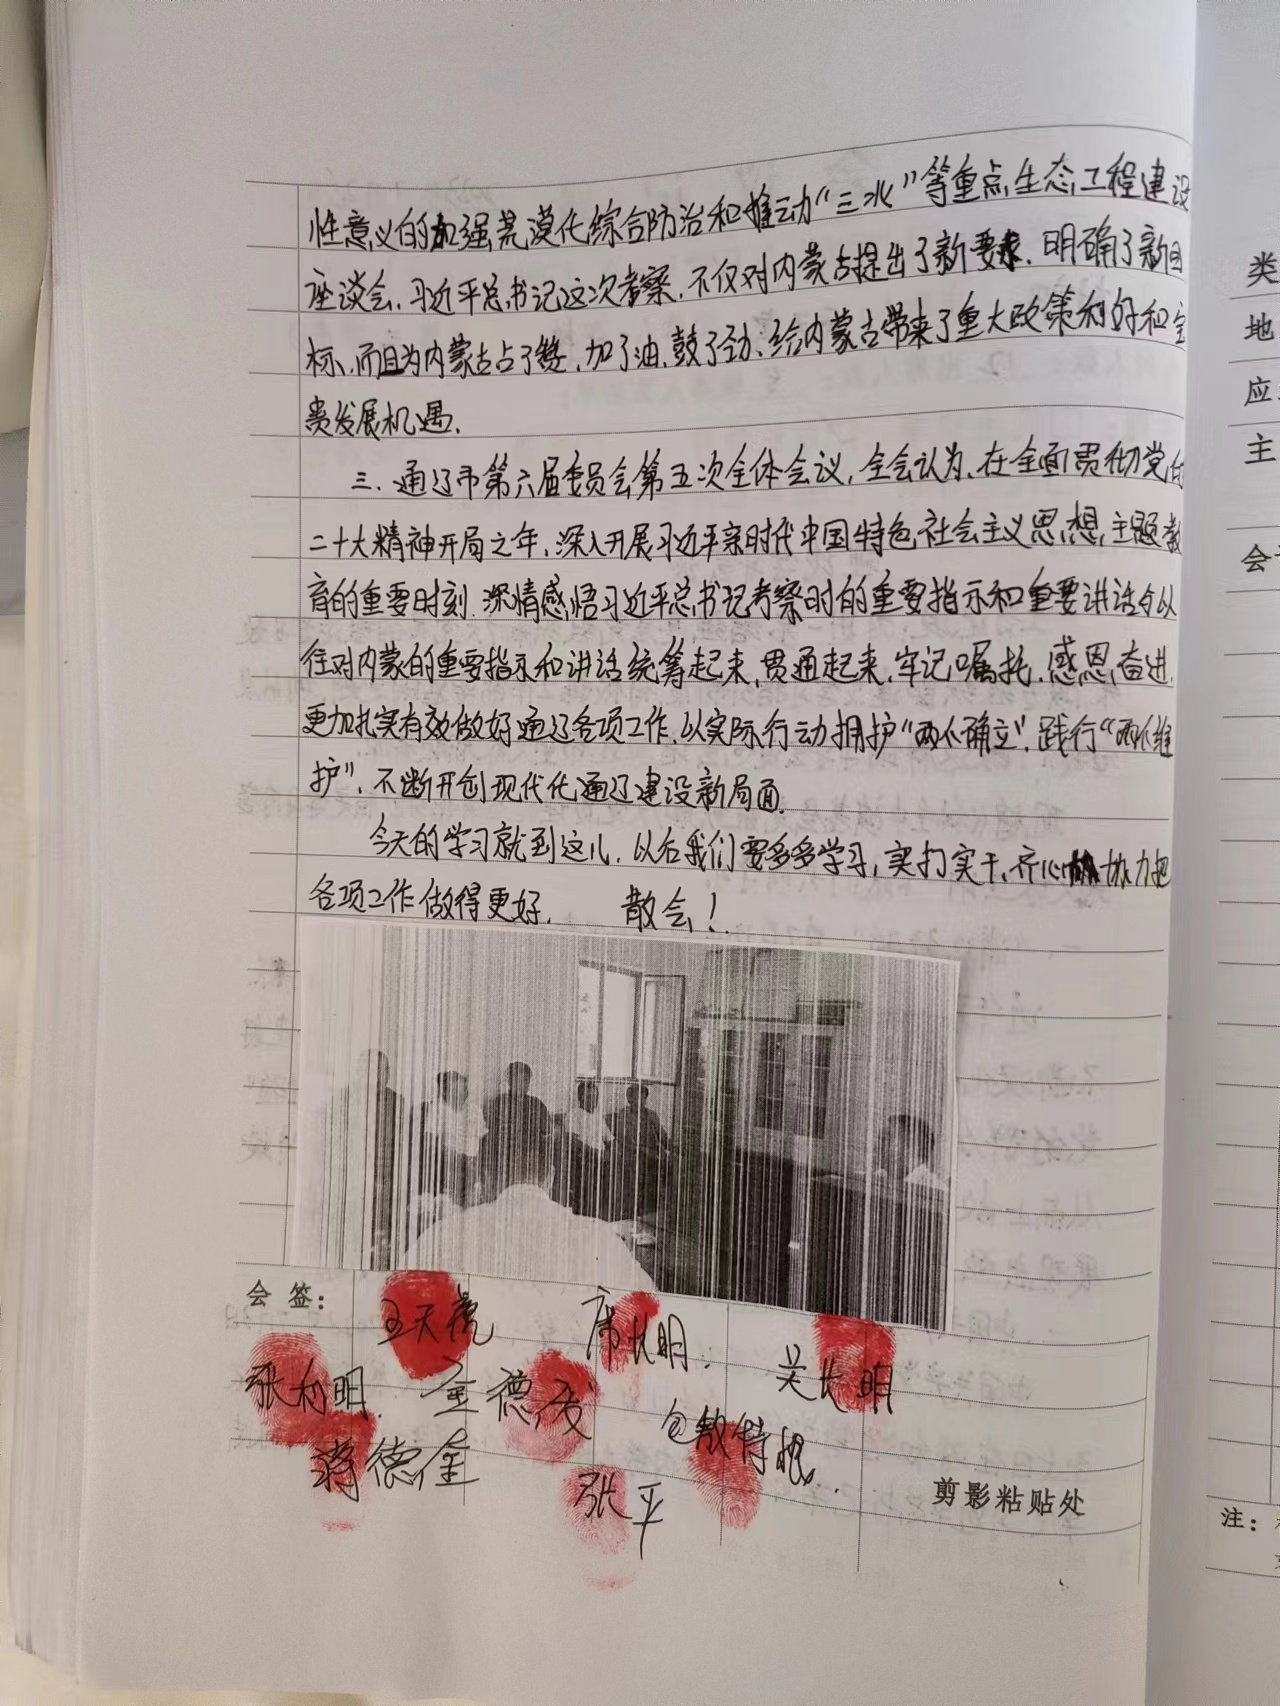 性意义的加强荒漠化综合防治和推动“三北”等重点生态工程建设
座谈会,习近平总书记这次考察,不仅对内蒙古提出了新要求,明确了新目
标,而且为内蒙古占了赞,加了油,鼓了劲,给内蒙古带来了重大政策利好和宝
贵发展机遇.
三.通辽市第六届委员会第五次全体会议,全会认为,在全面贯彻党的
二十大精神开局之年,深入开展习近平新时代中国特色社会主义思想,主题教
育的重要时刻.深情感悟习近平总书记考察时的重要指示和重要讲话令以
往对内蒙的重要指示和讲话统筹起来,贯通起来,牢记嘱托,感恩奋进,
更加扎实有效做好通辽各项工作,以实际行动拥护“两个确立”,践行“两个维
护”,不断开创现代化通辽建设新局面.
今天的学习就到这儿,以后我们要多多学习,实打实干,齐心协力把
各项工作做得更好. 散会!
会 签:
王天虎 席长明. 吴长明
张利明. 金德茂 包敖特根.
蒋德金
张平
剪影粘贴处
类
地
应
主
会
注: